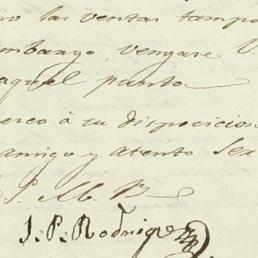 no las ventas tampo
embargo, vengase V.
aquel punto
erco á su disposicion
amigo y atento Ser
S. M. B.
J. P. Rodriguez